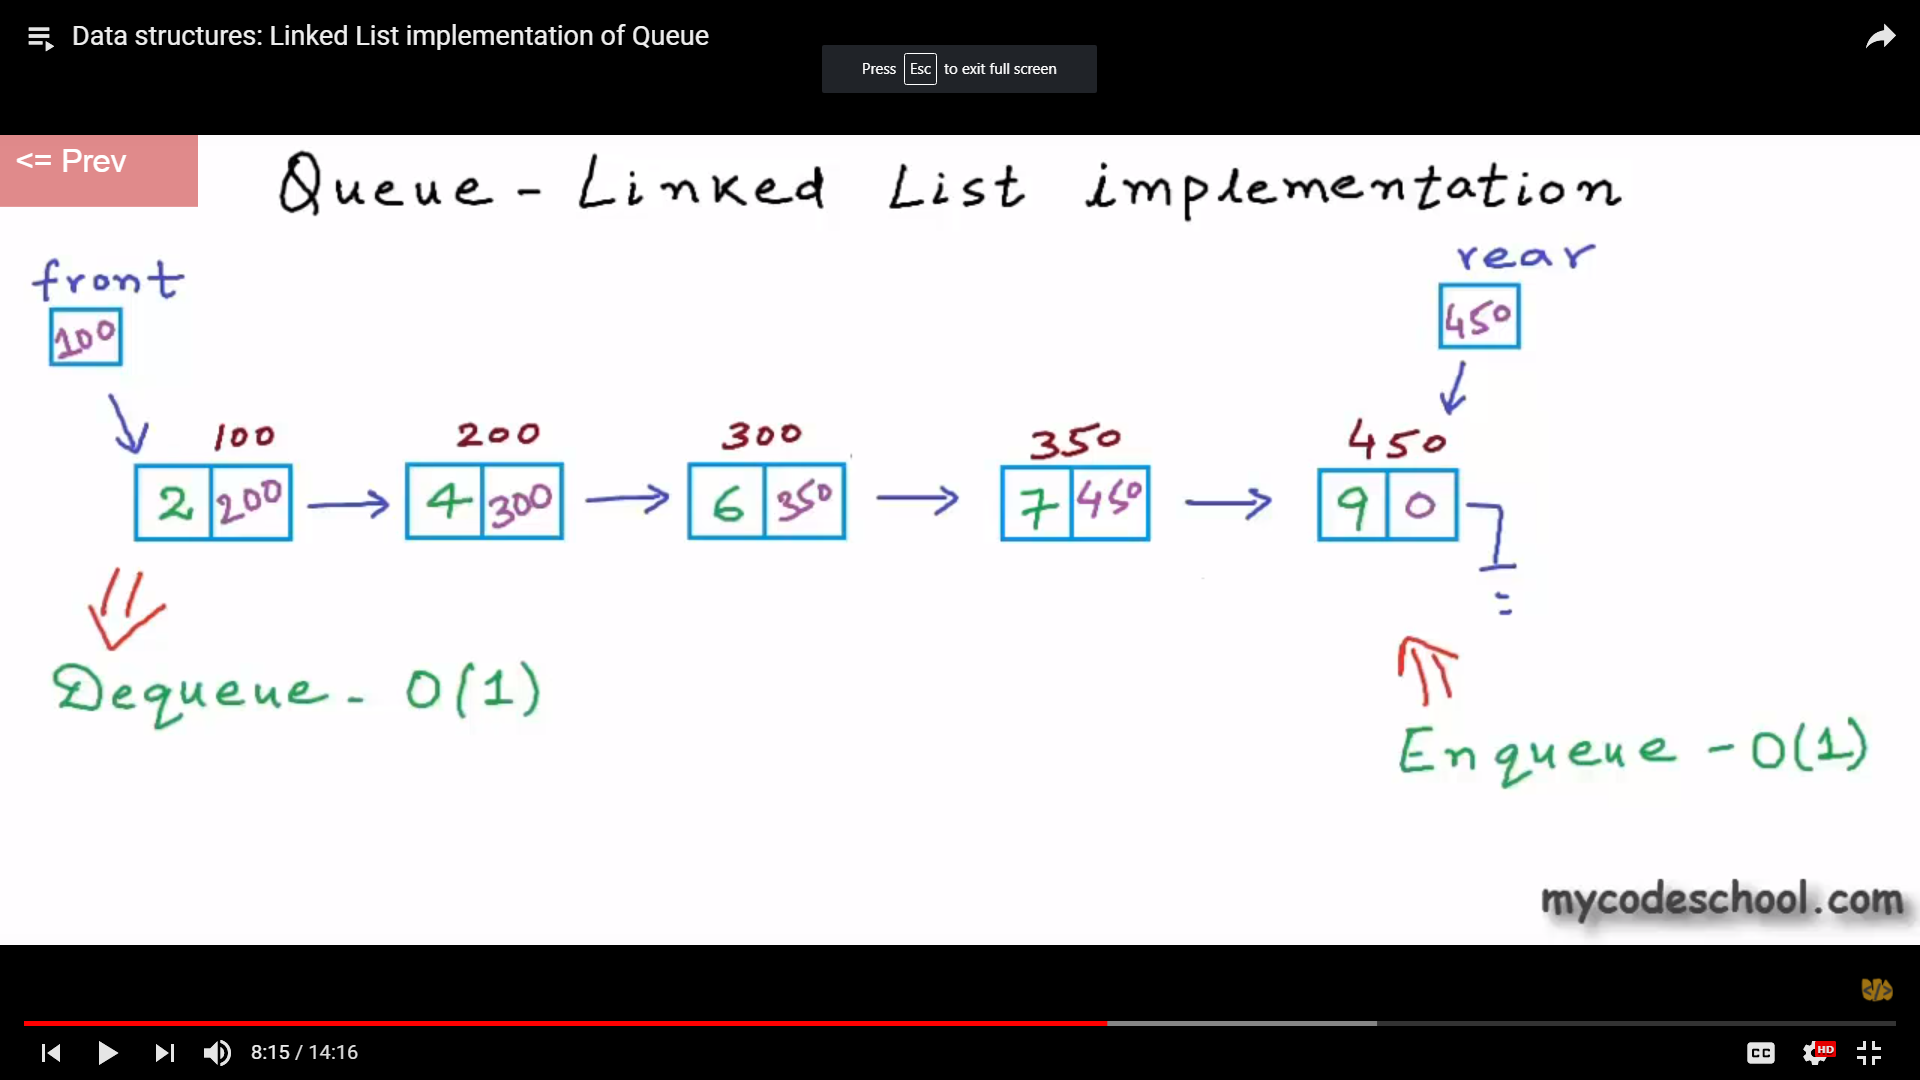 Data structures: Linked List implementation of Queue
Press Esc to exit full screen
<= Prev
Queue - Linked List implementation
front
rear
100
450
100 200 300 350 450
2 200 4 300 6 350 7 450 9 0
Dequeue - O(1)
Enqueue - O(1)
mycodeschool.com
</>
8:15 / 14:16
CC
HD